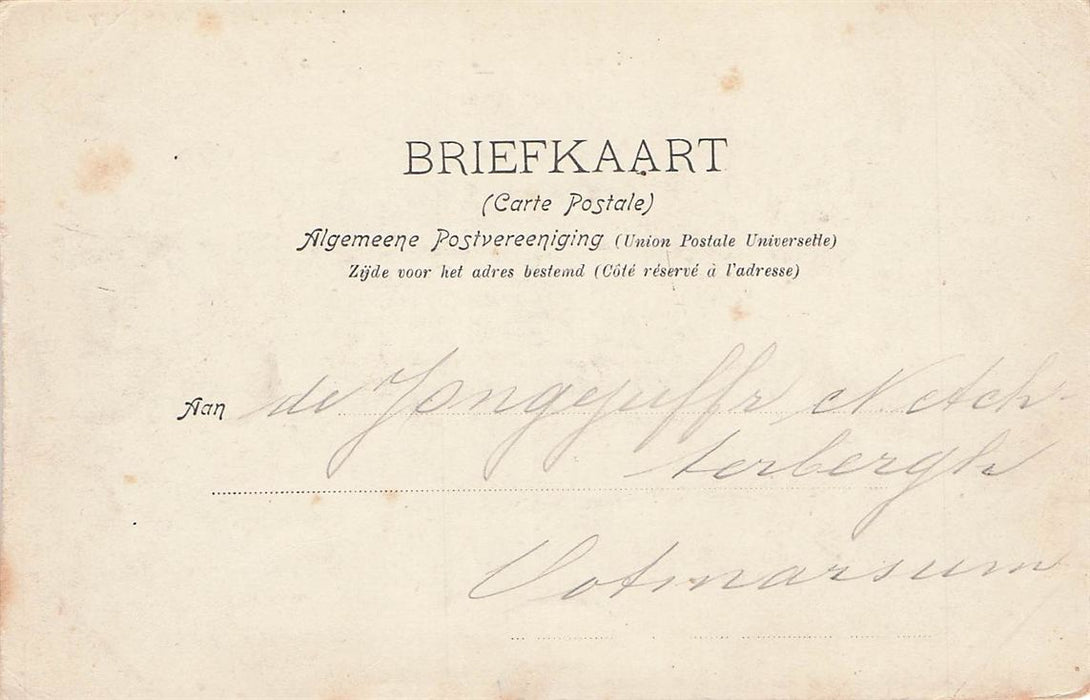 BRIEFKAART
(Carte Postale)
Algemeene Postvereeniging (Union Postale Universelle)
Zijde voor het adres bestemd (Côté réservé à l'adresse)
Aan de Jongejuffr N. Ach-
terbergh
Ootmarsum